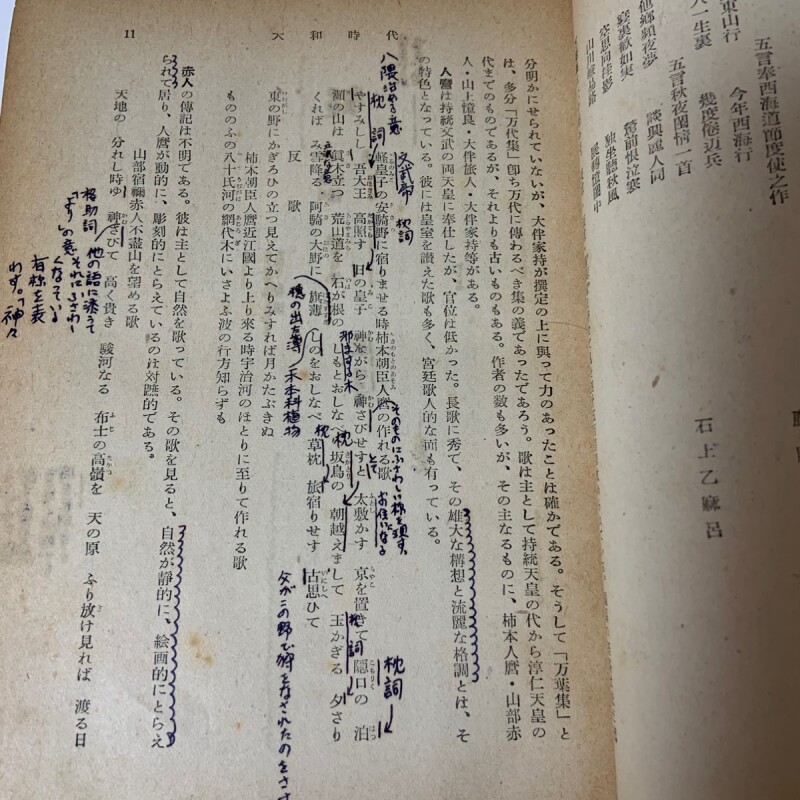 東山行
五言奉西海道節度使之作
今年西海行
一生裏
幾度倦辺兵
五言秋夜閨情一首
石上乙麻呂
他鄉頻夜夢
談與麗人同
寝裏歓如実
驚前恨泣裏
空思向桂影
独坐聴秋風
11
大和時代
分明かにせられていないが、大伴家持が撰定の上に與って力のあったことは確かである。そうして「万葉集」と
は、多分「万代集」卽ち万代に伝わるべき集の義であったであろう。歌は主として持統天皇の代から淳仁天皇の
代までのものであるが、それよりも古いものもある。作者の数も多いが、その主なるものに、柿本人麿・山部赤
人・山上憶良・大伴旅人・大伴家持等がある。
人麿は持統文武の両天皇に奉仕したが、官位は低かった。長歌に秀で、その雄大な構想と流麗な格調とは、そ
の特色となっている。彼には皇室を讃えた歌も多く、宮廷歌人的な面も有っている。
文武帝
枕詞
そのものにふさわしい様を現す。
お住いになる
枕詞
軽皇子の安騎野に宿りませる時柿本朝臣人麿の作れる歌
八隅治める意
枕詞
とて
やすみしし 吾大王 高照す 日の皇子 神ながら 神さびせすと 太敷かす 京を置きて 隠口の 泊
瀬の山は 真木立つ 荒山道を 石が根の しもとおしなべ 坂鳥の 朝越えまして 玉かぎる 夕さり
邪まする木
枕
枕詞
くれば み雪降る 阿騎の大野に 旗薄 しのをおしなべ 草枕 旅宿りせす 古思ひて
穂の出た薄
禾本科植物
枕
父がこの野で狩をなされたのをさす
反歌
東の野にかぎろひの立つ見えてかへりみすれば月かたぶきぬ
柿本朝臣人麿近江國より上り来る時宇治河のほとりに至りて作れる歌
もののふの八十氏河の網代木にいさよふ波の行方知らずも
赤人の傳記は不明である。彼は主として自然を歌っている。その歌を見ると、自然が靜的に、絵画的にとらえ
られて居り、人麿が動的に、彫刻的にとらえているのは対蹠的である。
山部宿禰赤人不盡山を望める歌
天地の 分れし時ゆ 神さびて 高く貴き 駿河なる 布士の高嶺を 天の原 ふり放け見れば 渡る日
格助詞
「より」の意
他の語に添うて
それにふさわし
くなっている
有様を表
わす。「神々